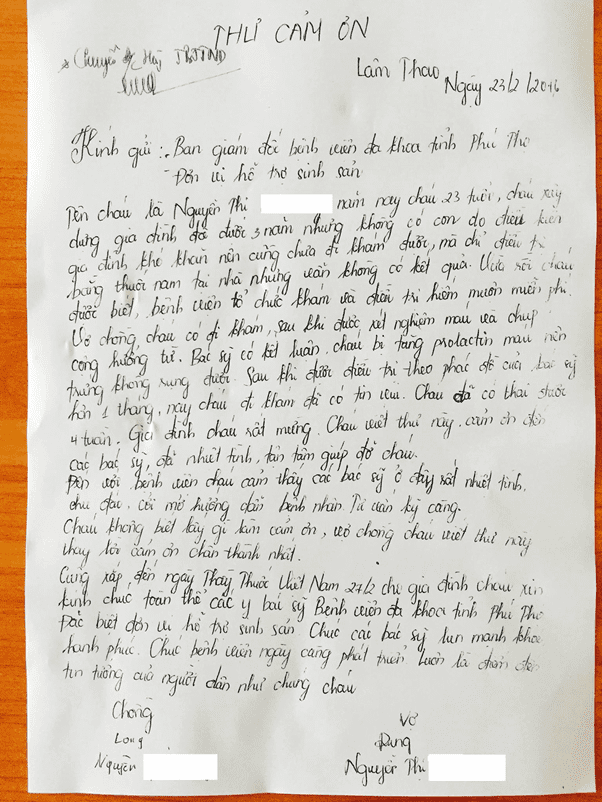 THƯ CẢM ƠN
Chuyển
Lâm Thao
Ngày 23/2/2016
Kính gửi: - Ban giám đốc bệnh viện đa khoa tỉnh Phú Thọ
- Đơn vị hỗ trợ sinh sản
Tên cháu là Nguyễn Thị năm nay cháu 23 tuổi, cháu xây
dựng gia đình đã được 3 năm nhưng không có con do điều kiện
gia đình khó khăn nên cũng chưa đi khám được, mà chỉ điều trị
bằng thuốc nam tại nhà nhưng vẫn không có kết quả. Vừa rồi cháu
được biết, bệnh viện tổ chức khám và điều trị hiếm muộn miễn phí
Vợ chồng cháu có đi khám, sau khi được xét nghiệm máu và chụp
cộng hưởng từ. Bác sỹ có kết luận, cháu bị tăng prolactin máu nên
trứng không rụng được. Sau khi được điều trị theo phác đồ của bác sỹ
hơn 1 tháng, nay cháu đi khám đã có tin vui. Cháu đã có thai được
4 tuần. Gia đình cháu rất mừng. Cháu viết thư này cảm ơn đến
các bác sỹ, đã nhiệt tình, tận tâm giúp đỡ cháu.
Đến với bệnh viện cháu cảm thấy các bác sỹ ở đây rất nhiệt tình,
chu đáo, cởi mở hướng dẫn bệnh nhân. Tư vấn kỹ càng.
Cháu không biết lấy gì làm cảm ơn, vợ chồng cháu viết thư này
thay lời cảm ơn chân thành nhất.
Cũng sắp đến ngày Thầy Thuốc Việt Nam 27/2 cho gia đình cháu xin
kính chúc toàn thể các y bác sỹ Bệnh viện đa khoa tỉnh Phú Thọ
Đặc biệt đơn vị hỗ trợ sinh sản. Chúc các bác sỹ lun mạnh khỏe
hạnh phúc. Chúc bệnh viện ngày càng phát triển luôn là điểm đến
tin tưởng của người dân như chúng cháu
Chồng Vợ
Long Dung
Nguyễn Nguyễn Thị